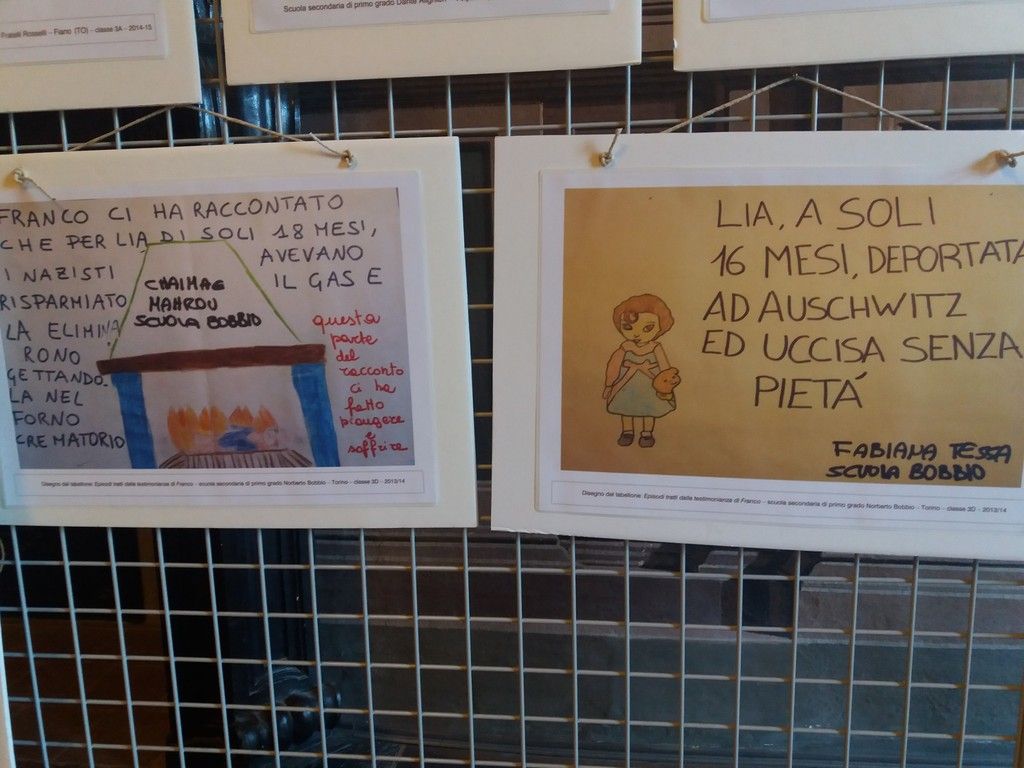 Fratelli Rosselli - Fiano (TO) - classe 3A - 2014-15
Scuola secondaria di primo grado Dante Alighieri
FRANCO CI HA RACCONTATO
CHE PER LIA DI SOLI 18 MESI,
I NAZISTI AVEVANO
RISPARMIATO IL GAS E
LA ELIMINA
RONO
GETTANDO-
LA NEL
FORNO
CREMATORIO
MAHROU
SCUOLA BOBBIO
questa
parte
del
racconto
ci ha
fatto
piangere
e
soffrire
Disegno dal tabellone: Episodi tratti dalla testimonianza di Franco - scuola secondaria di primo grado Norberto Bobbio - Torino - classe 3D - 2013/14
LIA, A SOLI
16 MESI, DEPORTATA
AD AUSCHWITZ
ED UCCISA SENZA
PIETÁ
FABIANA TESSA
SCUOLA BOBBIO
Disegno dal tabellone: Episodi tratti dalla testimonianza di Franco - scuola secondaria di primo grado Norberto Bobbio - Torino - classe 3D - 2013/14